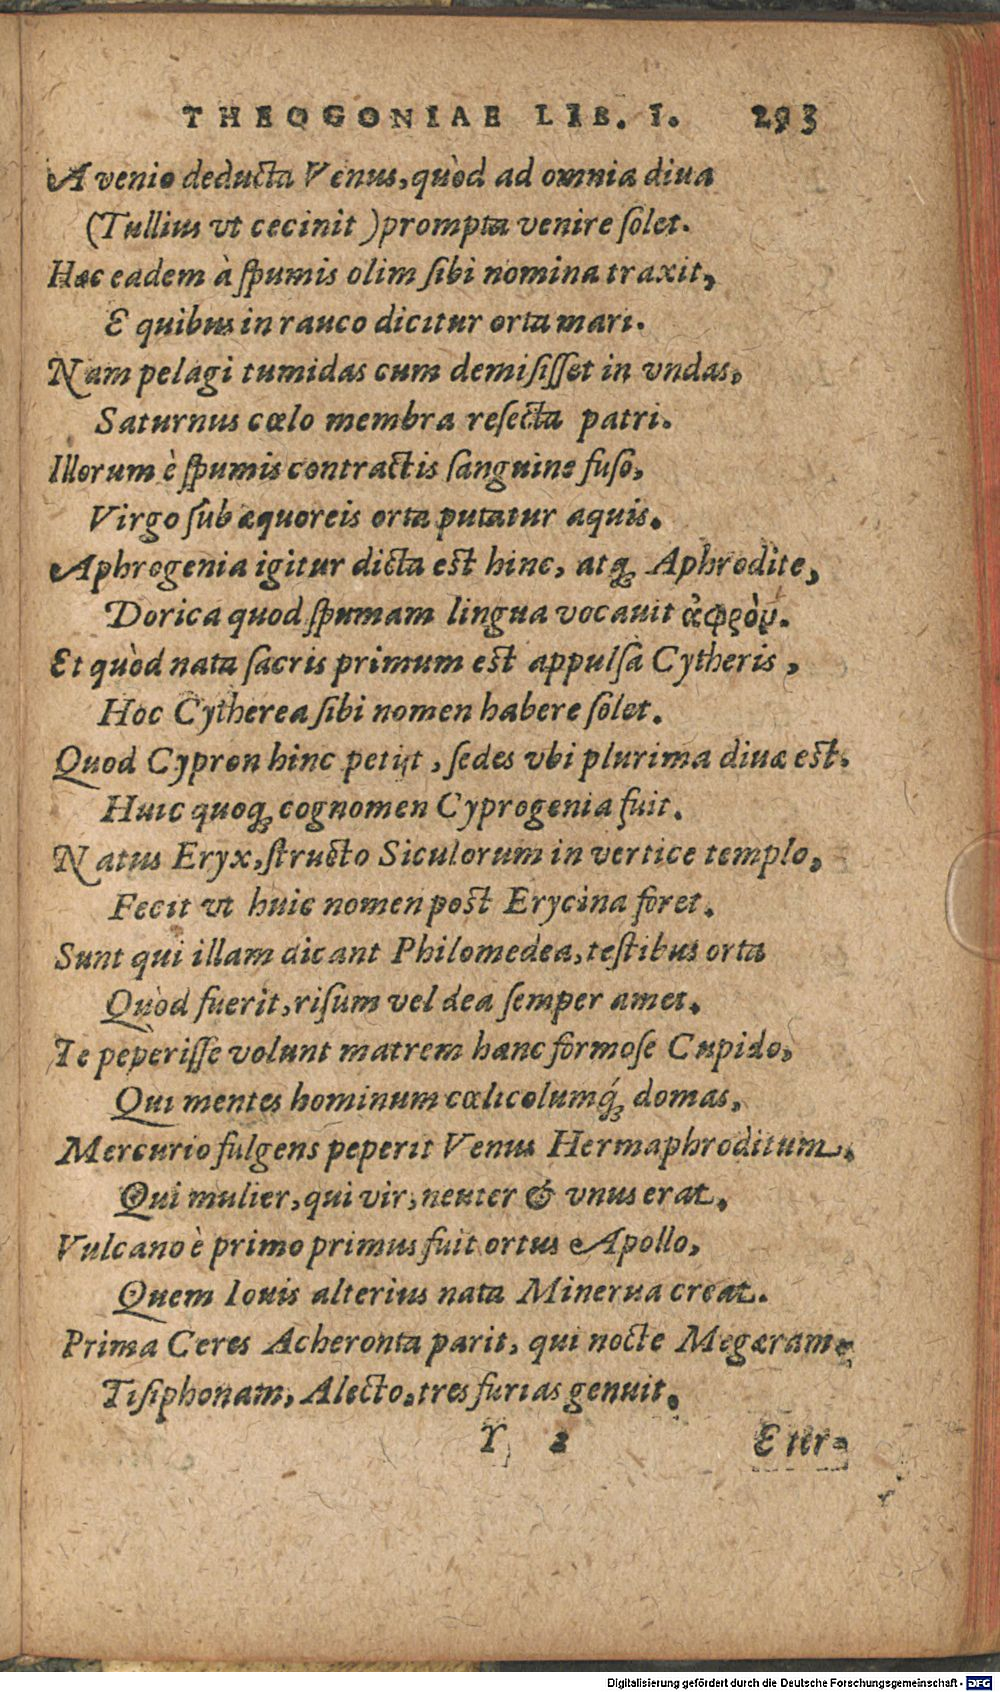 THEOGONIAE LIB. I. 293
A venio deducta Venus, quòd ad omnia diua
(Tullius vt cecinit) prompta venire solet.
Hæc eadem à spumis olim sibi nomina traxit,
E quibus in rauco dicitur orta mari.
Nam pelagi tumidas cum demisisset in vndas,
Saturnus cœlo membra resecta patri.
Illorum è spumis contractis sanguine fuso,
Virgo sub æquoreis orta putatur aquis.
Aphrogenia igitur dicta est hinc, atq; Aphrodite,
Dorica quod spumam lingua vocauit ἀφρὸν.
Et quòd nata sacris primum est appulsa Cytheris,
Hoc Cytherea sibi nomen habere solet.
Quod Cypron hinc petijt, sedes vbi plurima diuæ est.
Huic quoq; cognomen Cyprogenia fuit.
Natus Eryx, structo Siculorum in vertice templo,
Fecit vt huic nomen post Erycina foret.
Sunt qui illam dicant Philomedea, testibus orta
Quòd fuerit, risum vel dea semper amet.
Te peperisse volunt matrem hanc formose Cupido,
Qui mentes hominum cœlicolumq́; domas,
Mercurio fulgens peperit Venus Hermaphroditum,
Qui mulier, qui vir, neuter & vnus erat.
Vulcano è primo primus fuit ortus Apollo,
Quem Iouis alterius nata Minerua creat.
Prima Ceres Acheronta parit, qui nocte Megæram,
Tisiphonam, Alecto, tres furias genuit.
T 2 Eter-
Digitalisierung gefördert durch die Deutsche Forschungsgemeinschaft - DFG